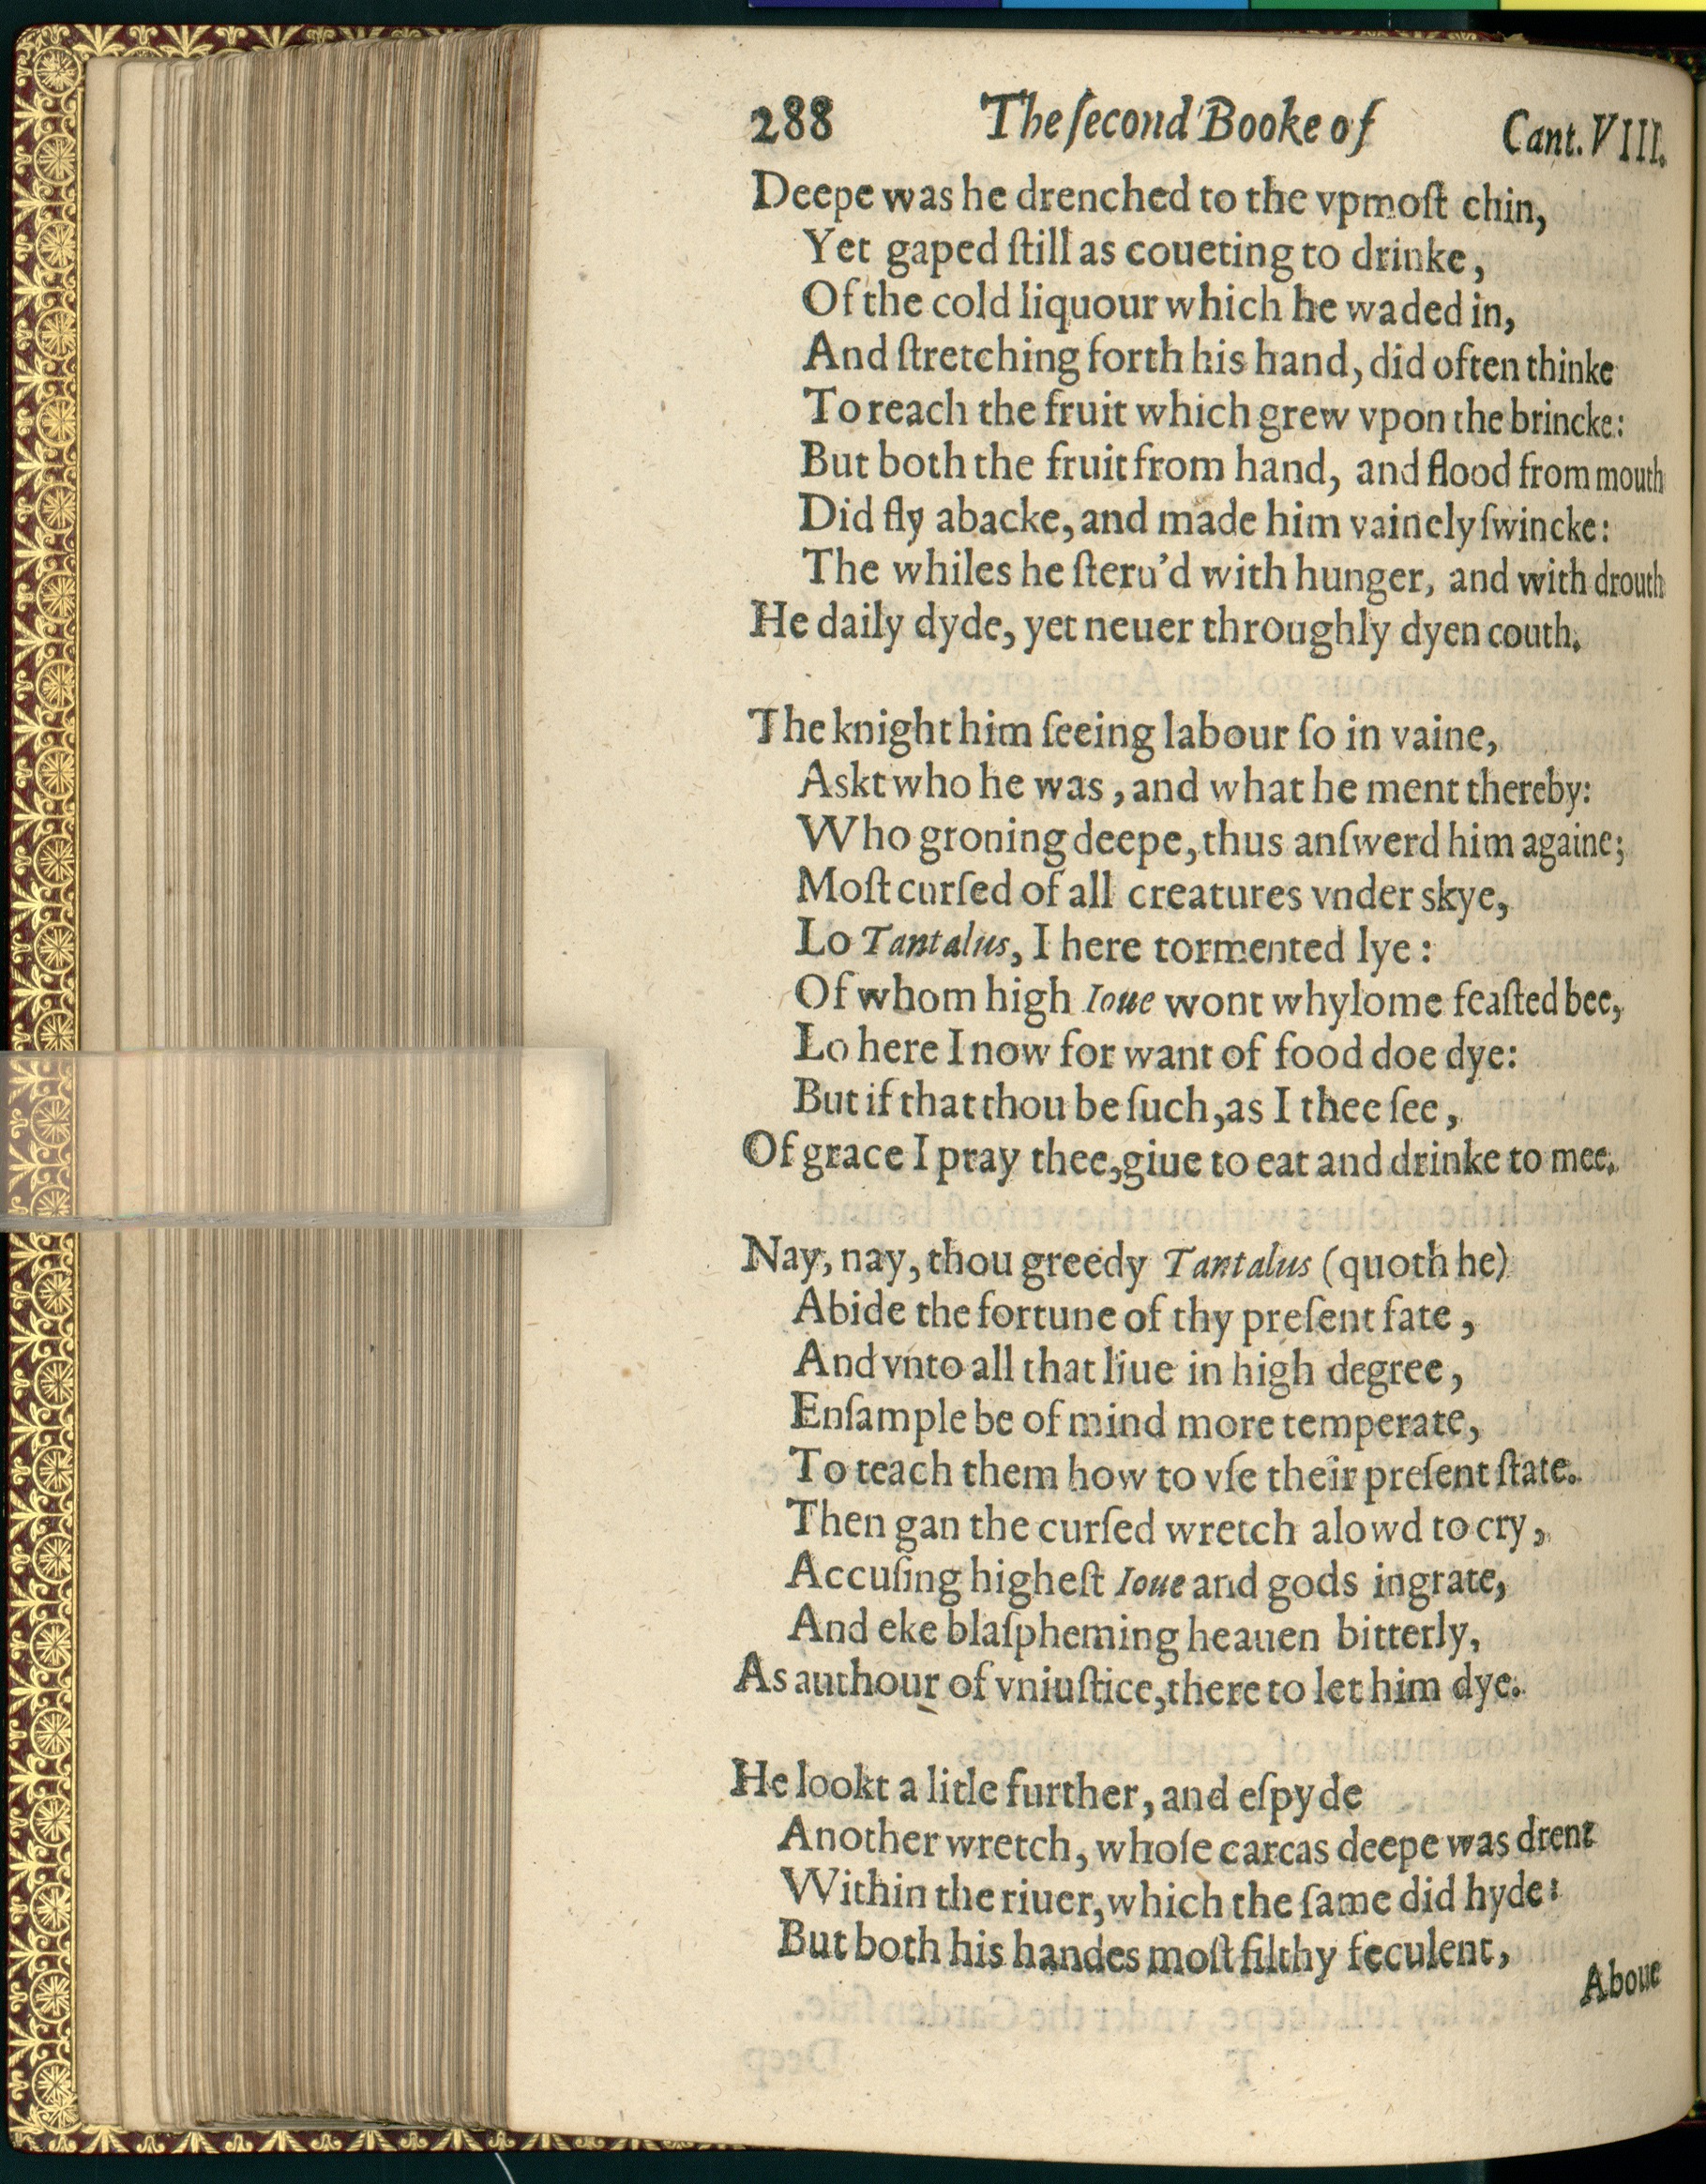 288 The ſecond Booke of Cant. VIII.
Deepe was he drenched to the vpmoſt chin,
Yet gaped ſtill as coueting to drinke,
Of the cold liquour which he waded in,
And ſtretching forth his hand, did often thinke
To reach the fruit which grew vpon the brincke:
But both the fruit from hand, and flood from mouth
Did fly abacke, and made him vainely ſwincke:
The whiles he ſteru'd with hunger, and with drouth
He daily dyde, yet neuer throughly dyen couth.
The knight him ſeeing labour ſo in vaine,
Askt who he was, and what he ment thereby:
Who groning deepe, thus anſwerd him againe;
Moſt curſed of all creatures vnder skye,
Lo Tantalus, I here tormented lye:
Of whom high Ioue wont whylome feaſted bee,
Lo here I now for want of food doe dye:
But if that thou be ſuch, as I thee ſee,
Of grace I pray thee, giue to eat and drinke to mee.
Nay, nay, thou greedy Tantalus (quoth he)
Abide the fortune of thy preſent fate,
And vnto all that liue in high degree,
Enſample be of mind more temperate,
To teach them how to vſe their preſent ſtate.
Then gan the curſed wretch alowd to cry,
Accuſing higheſt Ioue and gods ingrate,
And eke blaſpheming heauen bitterly,
As authour of vniuſtice, there to let him dye.
He lookt a litle further, and eſpyde
Another wretch, whoſe carcas deepe was drent
Within the riuer, which the ſame did hyde:
But both his handes moſt filthy feculent,
Aboue